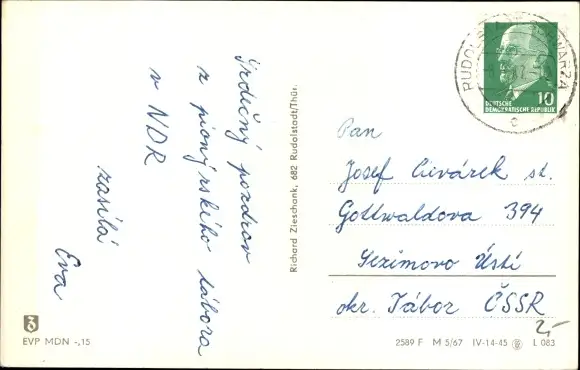 Srdečný pozdrav
z pionýrského tábora
v NDR
zasílá
Eva
Richard Zieschank, 682 Rudolstadt/Thür.
RUDOLSTADT-SCHWARZA
DEUTSCHE
DEMOKRATISCHE REPUBLIK
10
e
Pan
Josef Civárek st.
Gottwaldova 394
Sezimovo Ústí
okr. Tábor ČSSR
2,-
EVP MDN -,15
2589 F M 5/67 IV-14-45 L 083